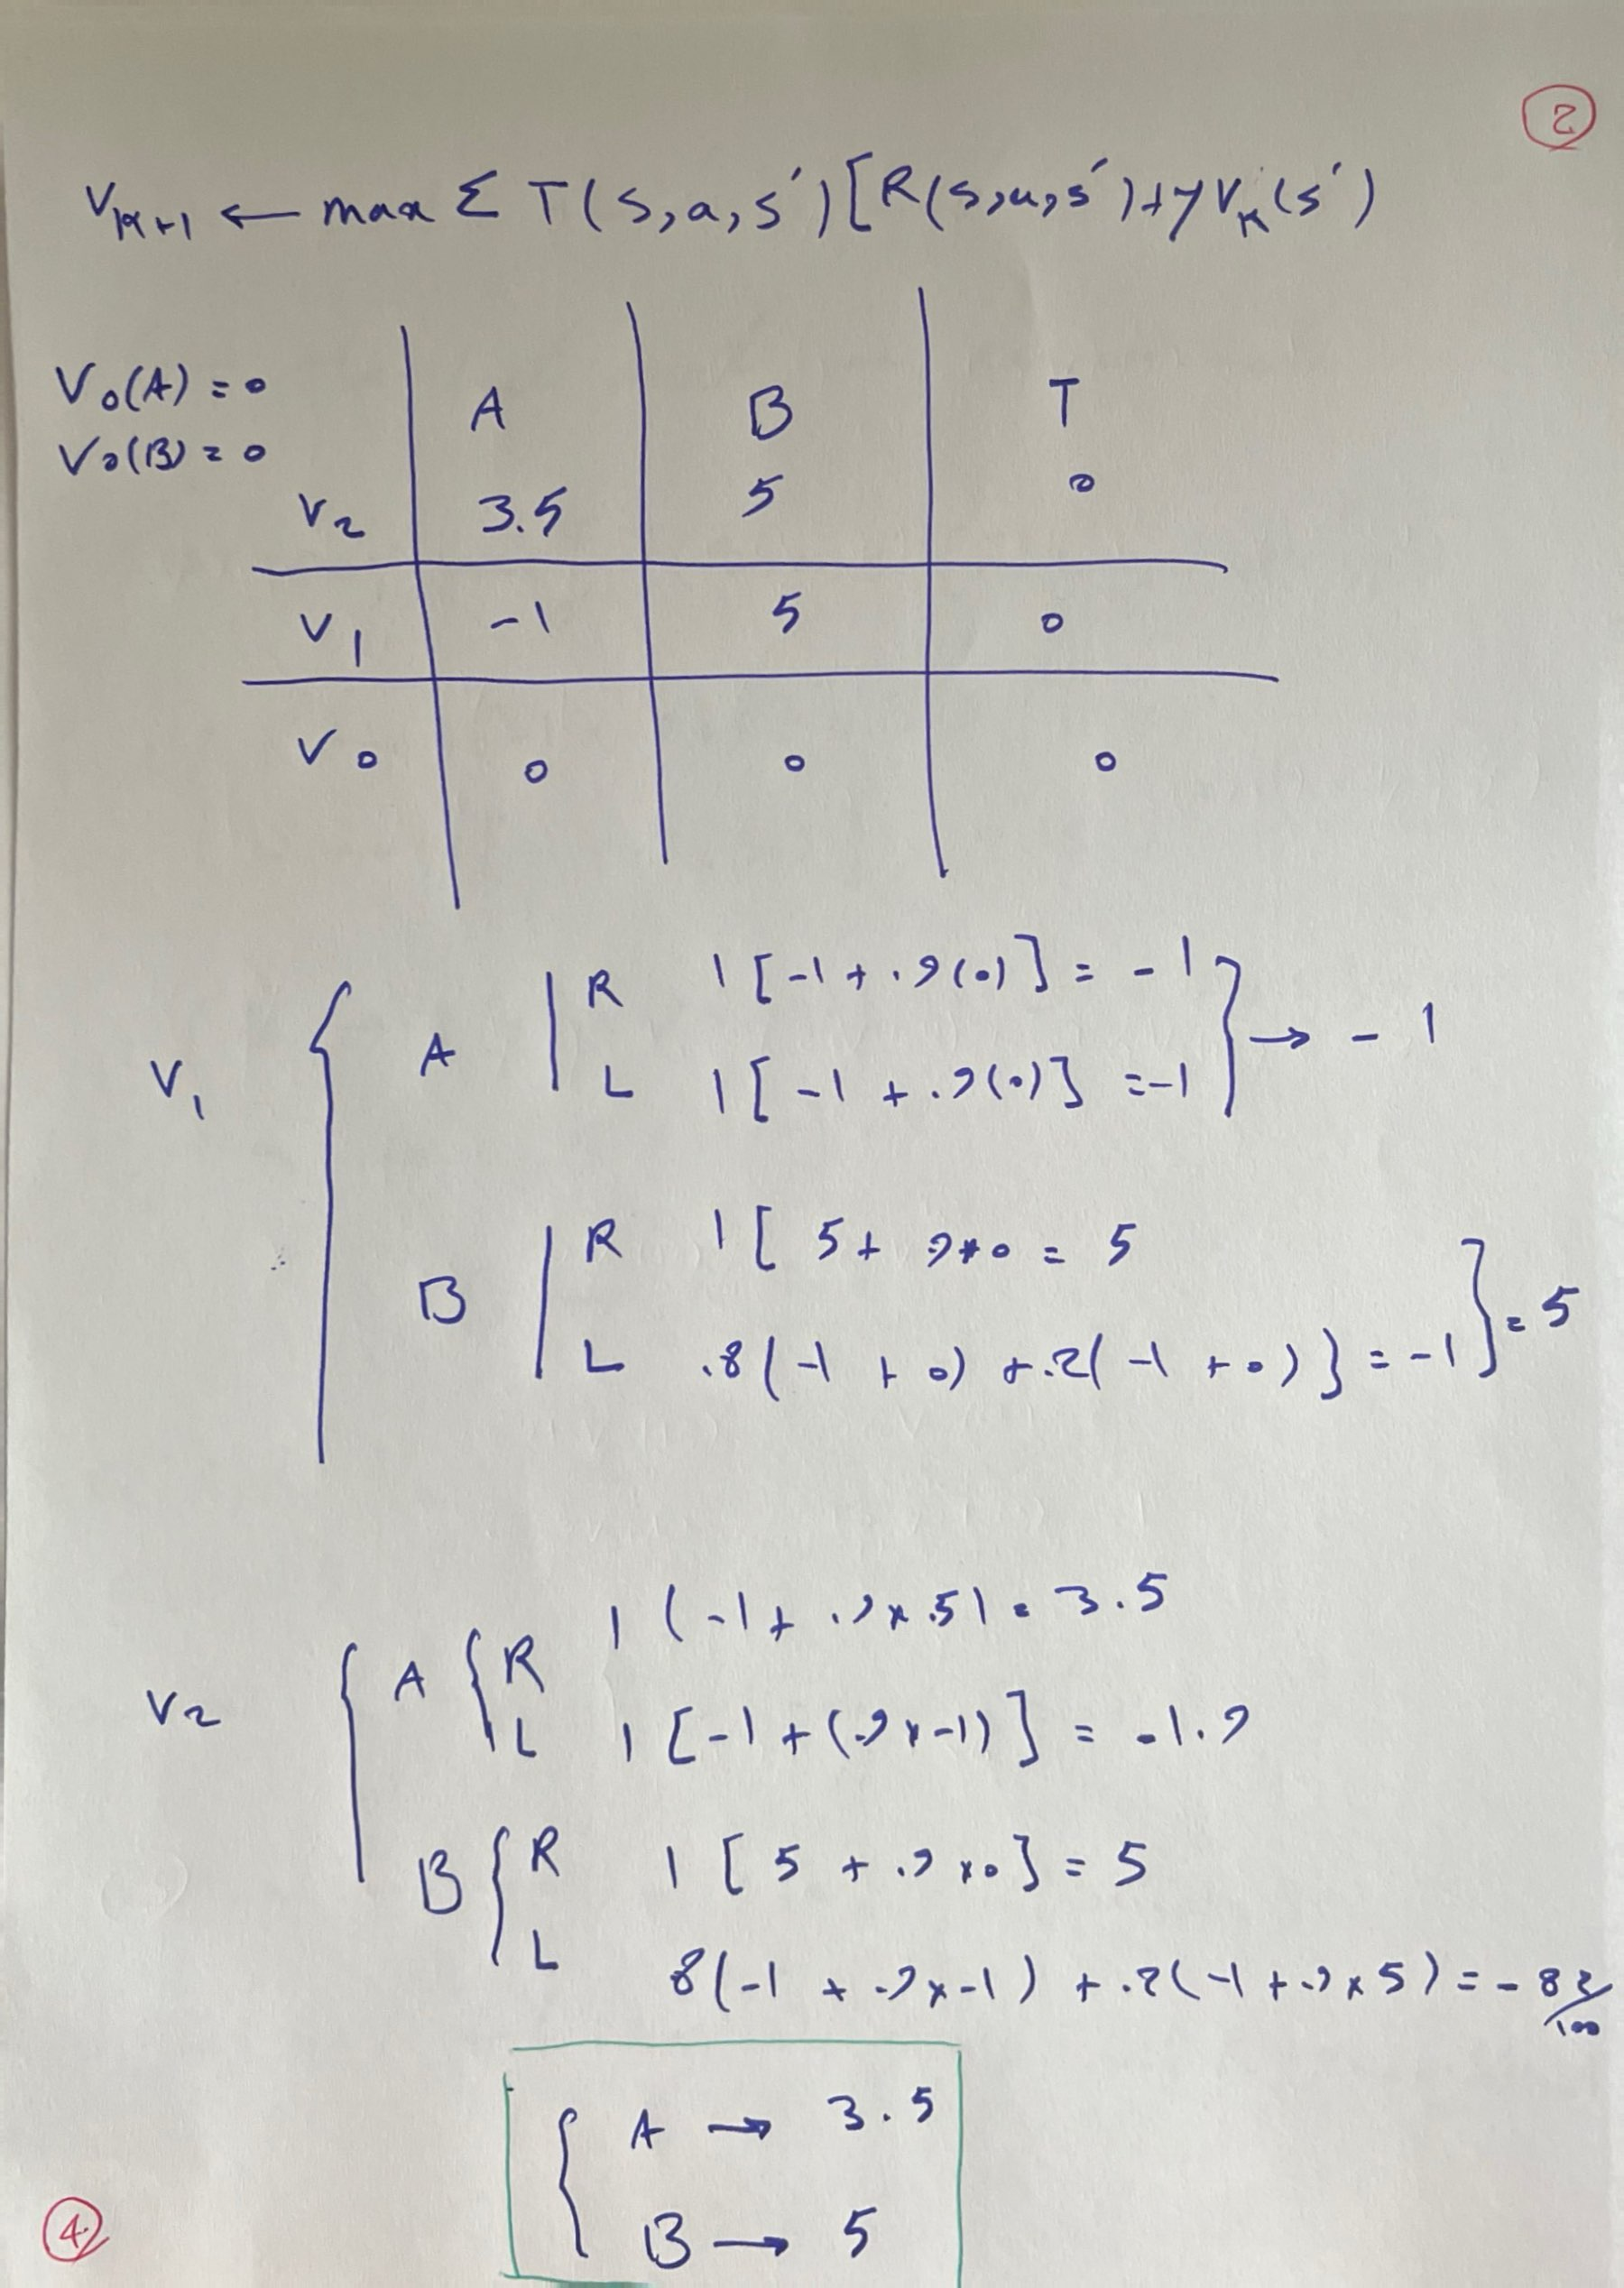 2
V_{k+1} ← max Σ T(s,a,s')[R(s,a,s')+γV_k(s')
V₀(A) = 0
V₀(B) = 0
A B T
V₂ 3.5 5 0
V₁ -1 5 0
V₀ 0 0 0
V₁
A
R 1[-1 + .9(0)] = -1
L 1[-1 + .9(0)] = -1
→ -1
B
R 1[ 5 + .9*0 = 5
L .8(-1 + 0) + .2(-1 + 0)} = -1
= 5
V₂
A
R 1(-1 + .9×5) = 3.5
L 1[-1 + (.9×-1)] = -1.9
B
R 1[5 + .9×0] = 5
L 8(-1 + .9×-1) + .2(-1 + .9×5) = -82/100
A → 3.5
B → 5
4